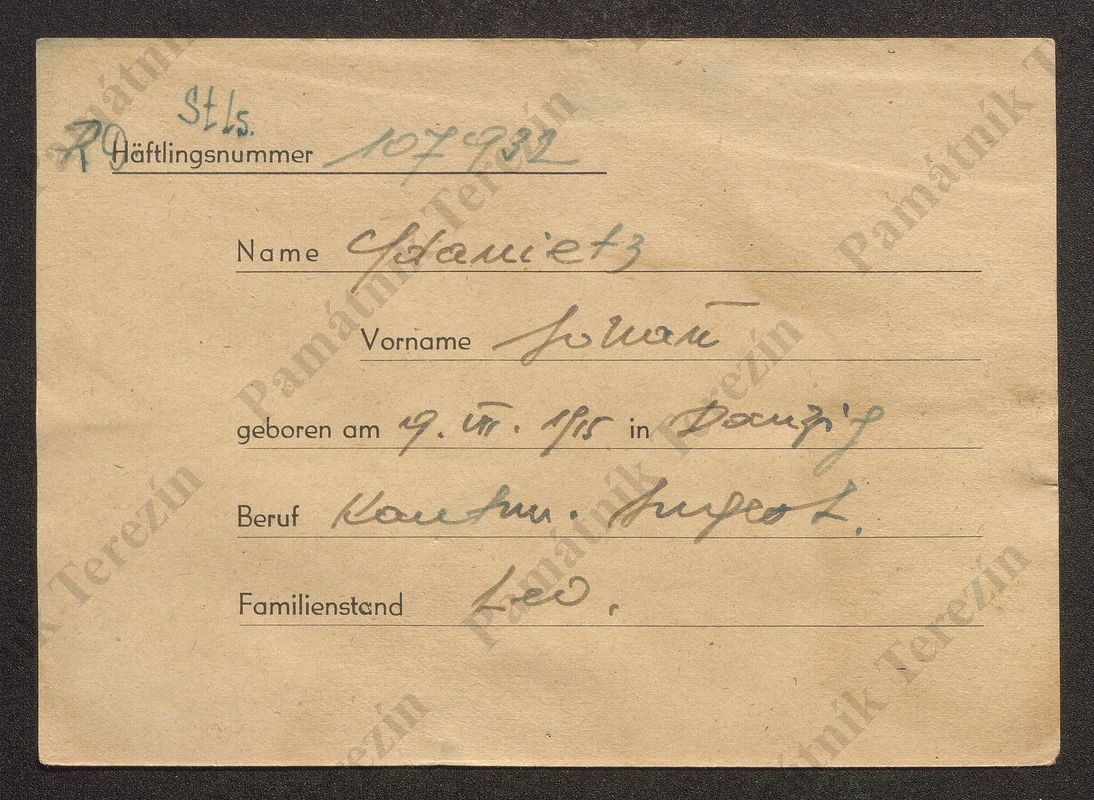 St Ls.
RD. Häftlingsnummer 107932
Name
Vorname Johann
geboren am 19. VIII. 1915 in Danzig
Beruf Kaufm. Angest.
Familienstand Led.
Památník Terezín